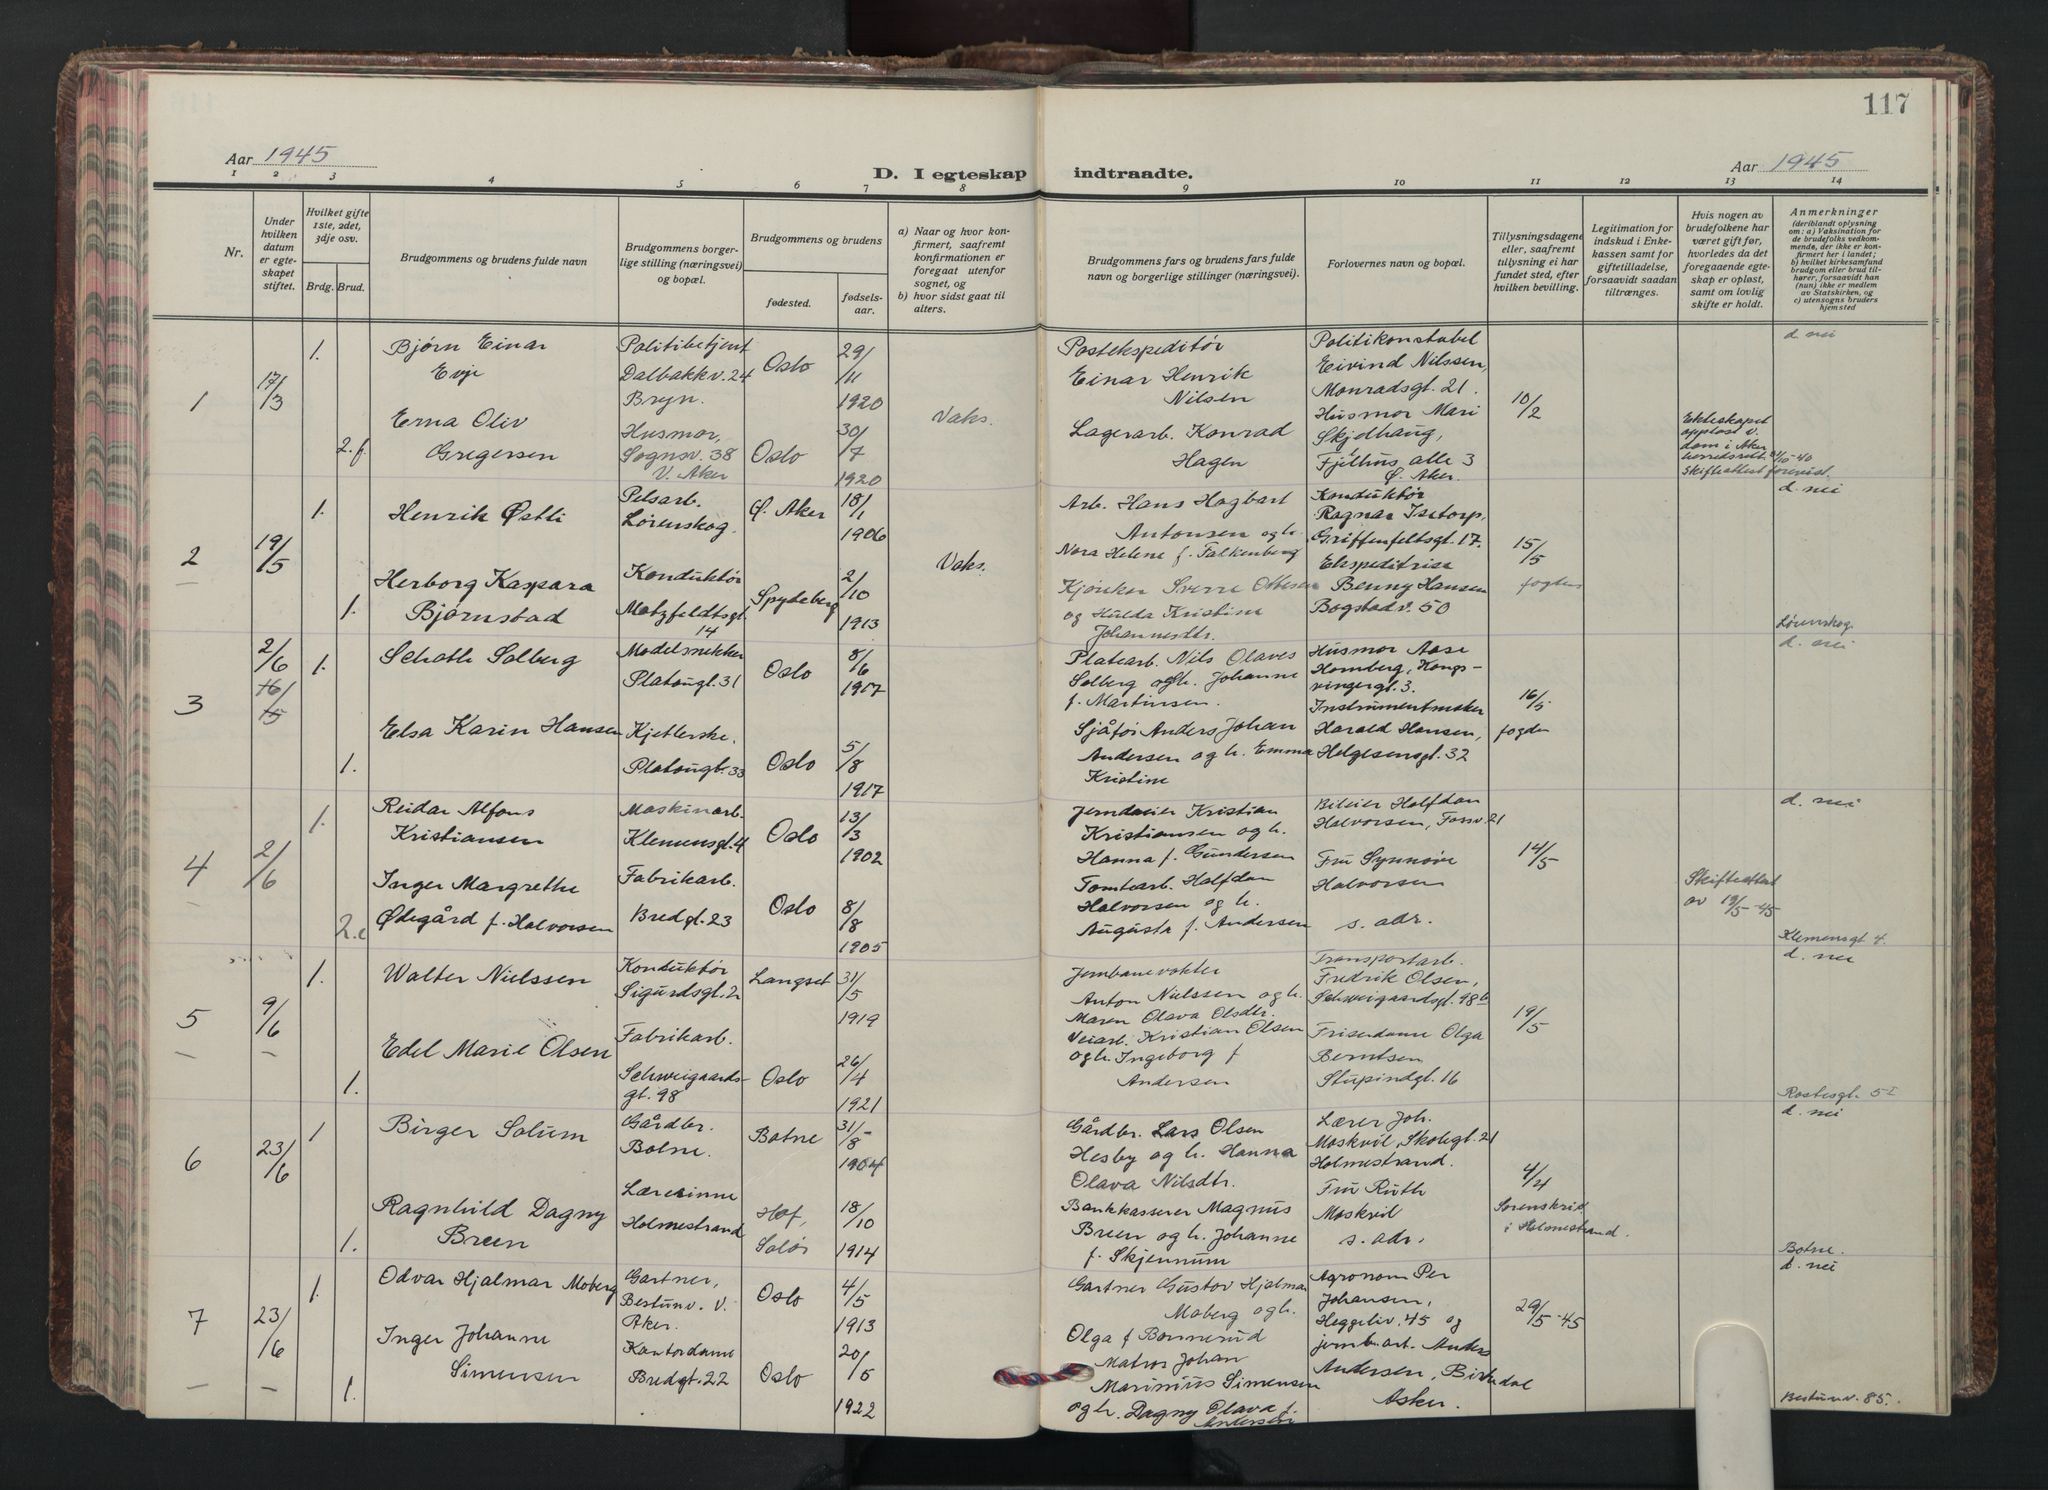 117
Aar 1945
D. I egteskap indtraadte.
Aar 1945
1 2 3 4 5 6 7 8 9 10 11 12 13 14
Nr.
Under hvilken datum er egteskapet stiftet.
Hvilket gifte 1ste, 2det, 3dje osv.
Brdg. Brud.
Brudgommens og brudens fulde navn
Brudgommens borgerlige stilling (næringsvei) og bopæl.
Brudgommens og brudens
fødested.
fødsels-aar.
a) Naar og hvor konfirmert, saafremt konfirmationen er foregaat utenfor sognet, og
b) hvor sidst gaat til alters.
Brudgommens fars og brudens fars fulde navn og borgerlige stillinger (næringsvei).
Forlovernes navn og bopæl.
Tillysningsdagene eller, saafremt tillysning ei har fundet sted, efter hvilken bevilling.
Legitimation for indskud i Enkekassen samt for giftetilladelse, forsaavidt saadan tiltrænges.
Hvis nogen av brudefolkene har været gift før, hvorledes da det foregaaende egteskap er opløst, samt om lovlig skifte er holdt.
Anmerkninger
(deriblandt oplysning om: a) Vaksination for de brudefolks vedkommende, der ikke er konfirmert her i landet; b) hvilket kirkesamfund brudgom eller brud tilhører, forsaavidt han (hun) ikke er medlem av Statskirken, og c) utensogns bruders hjemsted
1
17/3
1.
Bjørn Einar
Evje
Politibetjent
Dalbakkv. 24
Bryn.
Oslo
29/11
1920
Vaks.
Postekspeditør
Einar Henrik
Nilsen
Politikonstabel
Eivind Nilssen,
Monradsgt. 21.
10/2
d. nei
2. f.
Erna Oliv
Gregersen
Husmor,
Sognsv. 38
V. Aker
Oslo
30/7
1920
Lagerarb. Konrad
Hagen
Husmor Mari
Skjelhaug,
Fjellhus alle 3
Ø. Aker.
Ekteskapet
oppløst v.
dom i Aker
herredsrett
Skifteattest forevist.
2
19/5
1.
Henrik Østli
Pelsarb.
Lørenskog.
Ø. Aker
18/1
1906
Vaks.
Arb. Hans Hagbart
Antonsen og h.
Nora Helene f. Falkenberg
Konduktør
Ragnar Istorp,
Griffenfeldtsgt. 17.
15/5
fogden
d. nei
1.
Herborg Kaspara
Bjørnstad
Konduktør
Motzfeldtsgt.
14
Spydeberg
2/10
1913
Kjørker Sverre Ottesen
og Hulda Kristine
Johannesdtr.
Ekspeditrise
Benny Hansen
Bogstadv. 50
Lørenskog.
3
2/6
16/5
1.
Schoth Solberg
Modelsnekker
Platougt. 31
Oslo
8/6
1907
Platearb. Nils Olaves
Solberg og h. Johanne
f. Martinsen.
Husmor Aase
Homberg, Kongs-
vingergt. 3.
16/5
fogden
d. nei
1.
Elsa Karin Hansen
Kjetlerske.
Platougt. 33
Oslo
5/8
1917
Sjåfør Anders Johan
Andersen og h. Emma
Kristine
Instrumentmaker
Harald Hansen,
Helgesensgt. 32
4
2/6
1.
Reidar Alfons
Kristiansen
Maskinarb.
Klemensgt. 4
Oslo
13/3
1902
Jerndreier Kristian
Kristiansen og h.
Hanna f. Gundersen
Bileier Halfdan
Halvorsen, Tossv. 21
14/5
d. nei
2.c
Inger Margrethe
Ødegård f. Halvorsen
Fabrikarb.
Bredgt. 23
Oslo
8/8
1905
Tomtearb. Halfdan
Halvorsen og h.
Augusta f. Andersen
Fru Synnøve
Halvorsen
s. adr.
Skifteattest
av 19/5-45
Klemensgt. 4.
5
9/6
1.
Walter Nielssen
Konduktør
Sigurdsgt. 2
Langset
31/5
1919
Jernbanevokter
Anton Nielssen og h.
Maren Olava Olsdtr.
Transportarb.
Fredrik Olsen,
Schweigaardsgt. 98 b
19/5
d. nei
1.
Edel Marie Olsen
Fabrikarb.
Schweigaards-
gt. 98
Oslo
26/4
1921
Veiarb. Kristian Olsen
og h. Ingeborg f
Andersen
Friserdame Olga
Berntsen
Stupindgt. 16
Rostesgt. 5 I
6
23/6
1
Birger Solum
Gårdbr.
Botne.
Botne
31/8
1904
Gårdbr. Lars Olsen
Hesby og h. Hanna
Olava Nilsdtr.
Lærer Joh.
Moskvil, Skolegt. 21
Holmestrand.
4/4
Sorenskriv.
i Holmestrand.
d. nei
1.
Ragnhild Dagny
Breen
Lærerinne
Holmestrand
Hof,
Solør
18/10
1914
Bankkasserer Magnus
Breen og h. Johanne
f. Skjennum
Fru Ruth
Moskvil
s. adr.
Botne.
7
23/6
1.
Odvar Hjalmar Moberg
Gartner,
Bestumv. V.
Aker.
Oslo
4/5
1913
Gartner Gustov Hjalmar
Moberg og h.
Olga f Bonnerud
Agronom Per
Johansen,
Heggeliv. 45 og
29/5-45
d. nei
1.
Inger Johanne
Simensen
Kontordame
Bredgt. 22
Oslo
20/5
1922
Matros Johan
Marinius Simensen
og h. Dagny Olava f.
Andersen
jernb.art. Anders
Andersen, Birkedal
Asker.
Bestumv. 85.